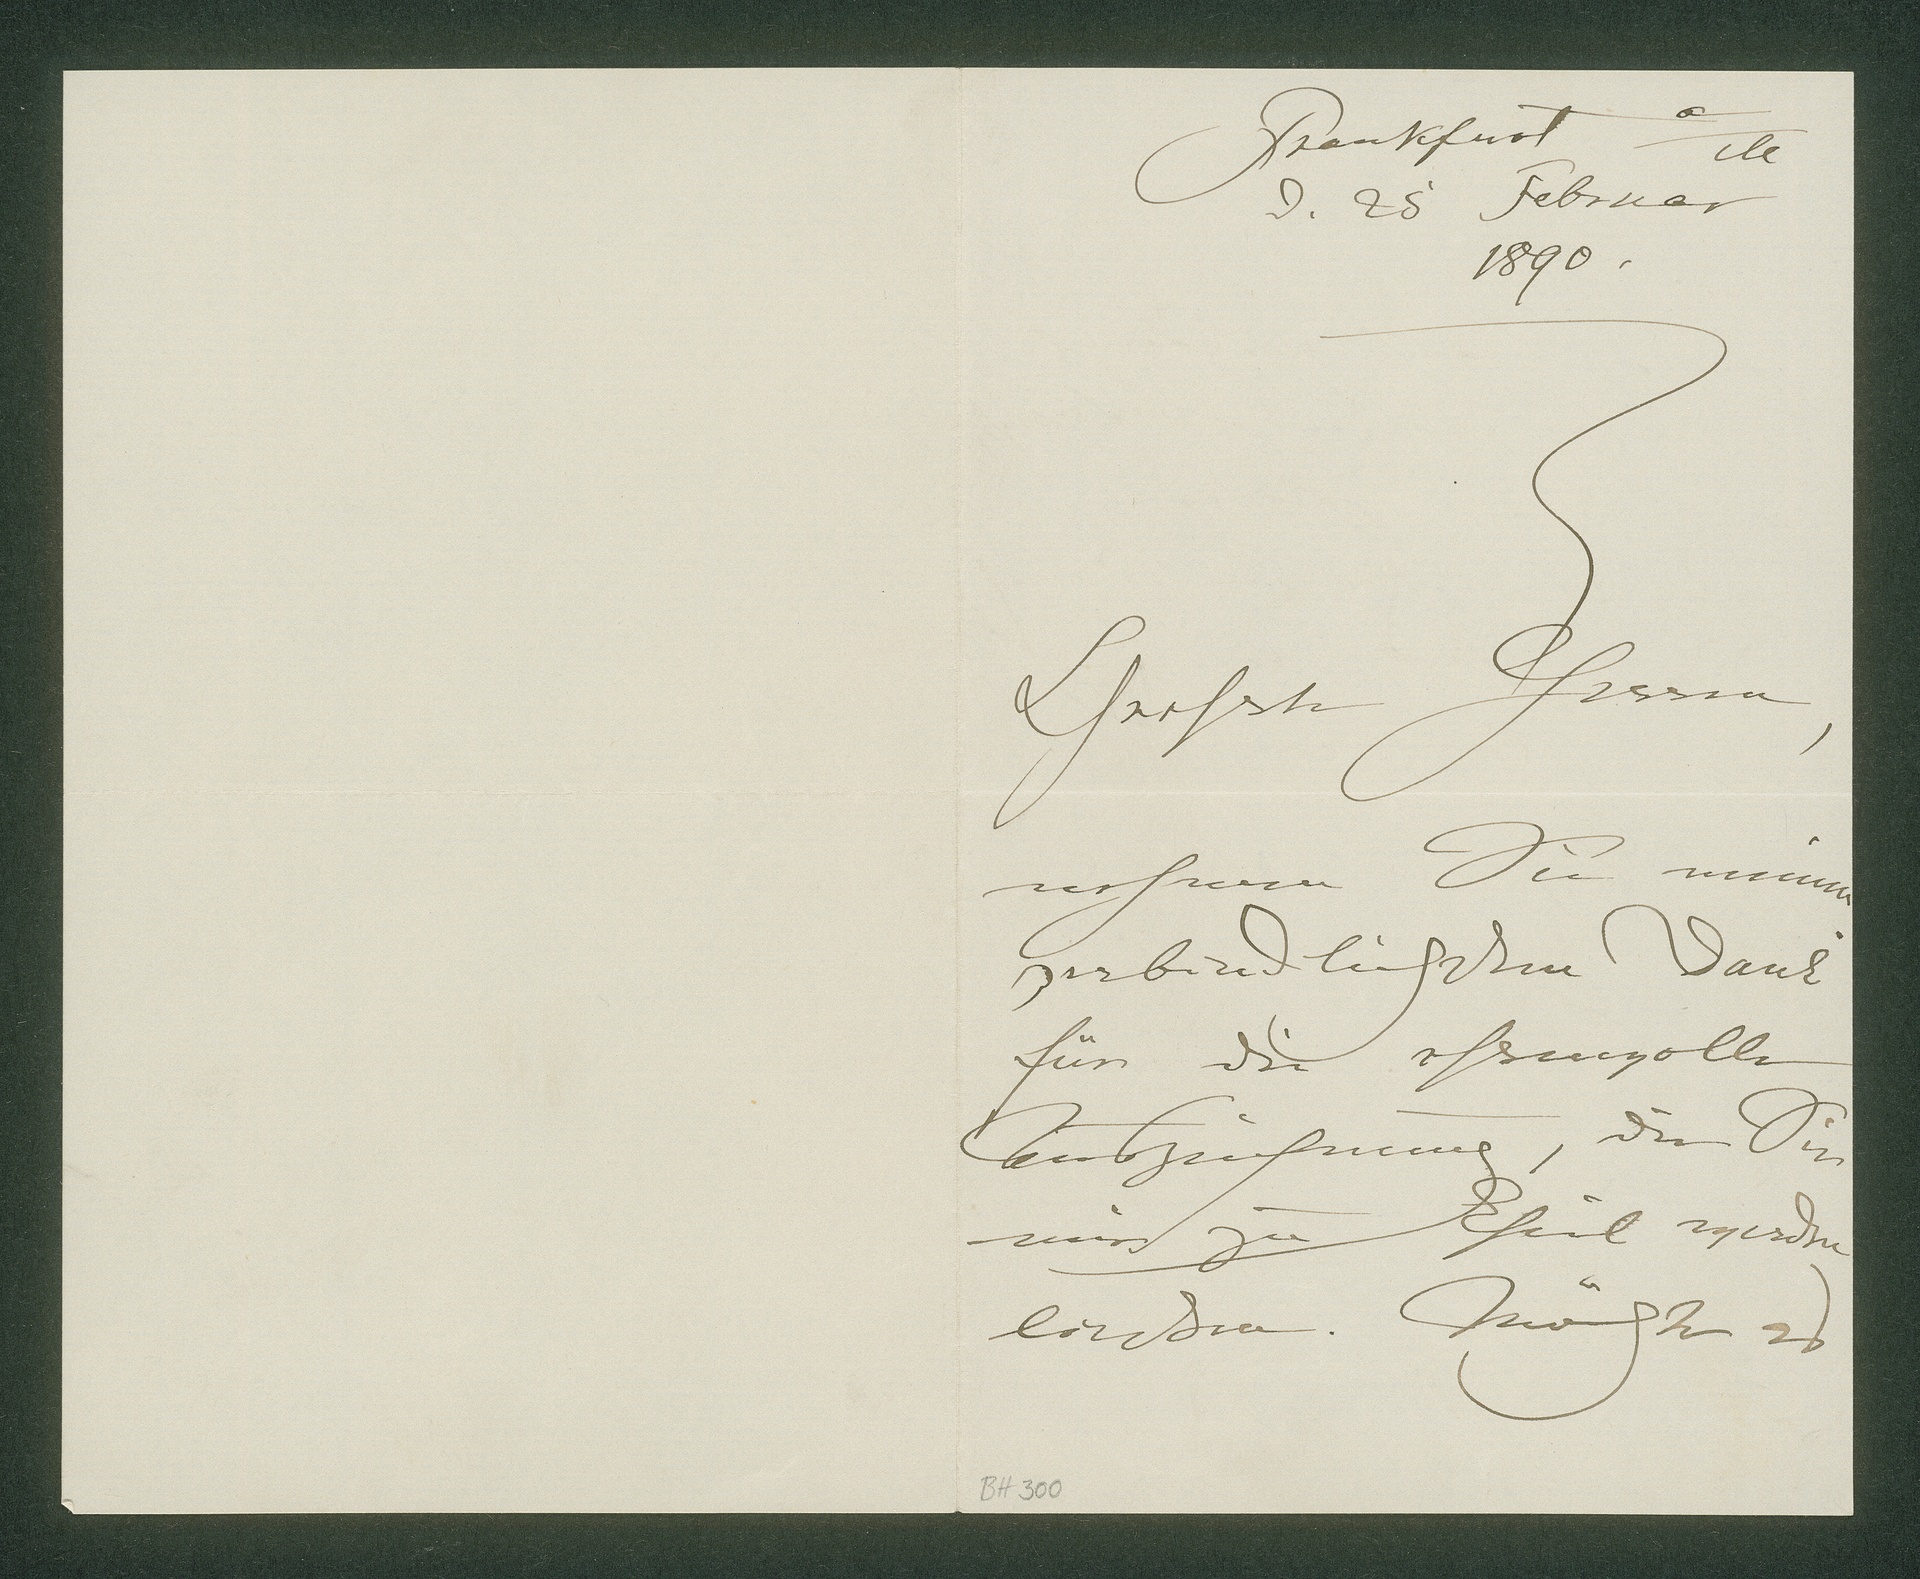 Frankfurt a/M
d. 25 Februar
1890.
Geehrte Herren,
nehmen Sie meinen
verbindlichsten Dank
für die ehrenvolle
Auszeichnung, die Sie
mir zu Theil werden
ließen. Möchte es
BH 300